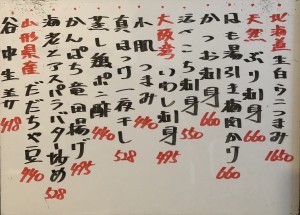 北海道 生白うこつまみ 1650
天然 ぶり刺身 660
はも湯引き梅肉かけ 660
かつお刺身 660
活〆こち刺身 550
大阪産 いわし刺身 495
小肌つまみ 440
真ほっけ一夜干し 528
蒸し鶏ポン酢 440
かんぱち竜田揚げ 495
海老とアスパラバター炒め 528
山形県産 だだちゃ豆 440
谷中生姜 418